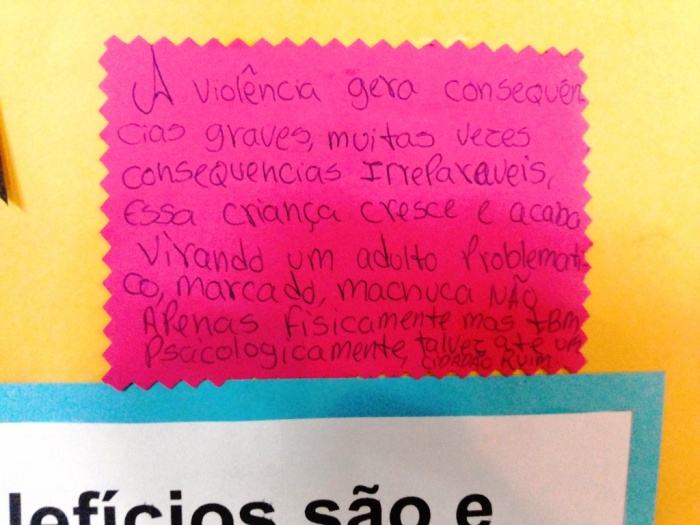 A violência gera consequên
cias graves, muitas vezes
consequencias Irreparaveis,
Essa criança cresce e acaba
Virando um adulto Problemati-
co, marcado, machuca NÃO
Apenas fisicamente mas tBm
Psicologicamente, talvez até um
CIDADÃO RUIM
lefícios são e